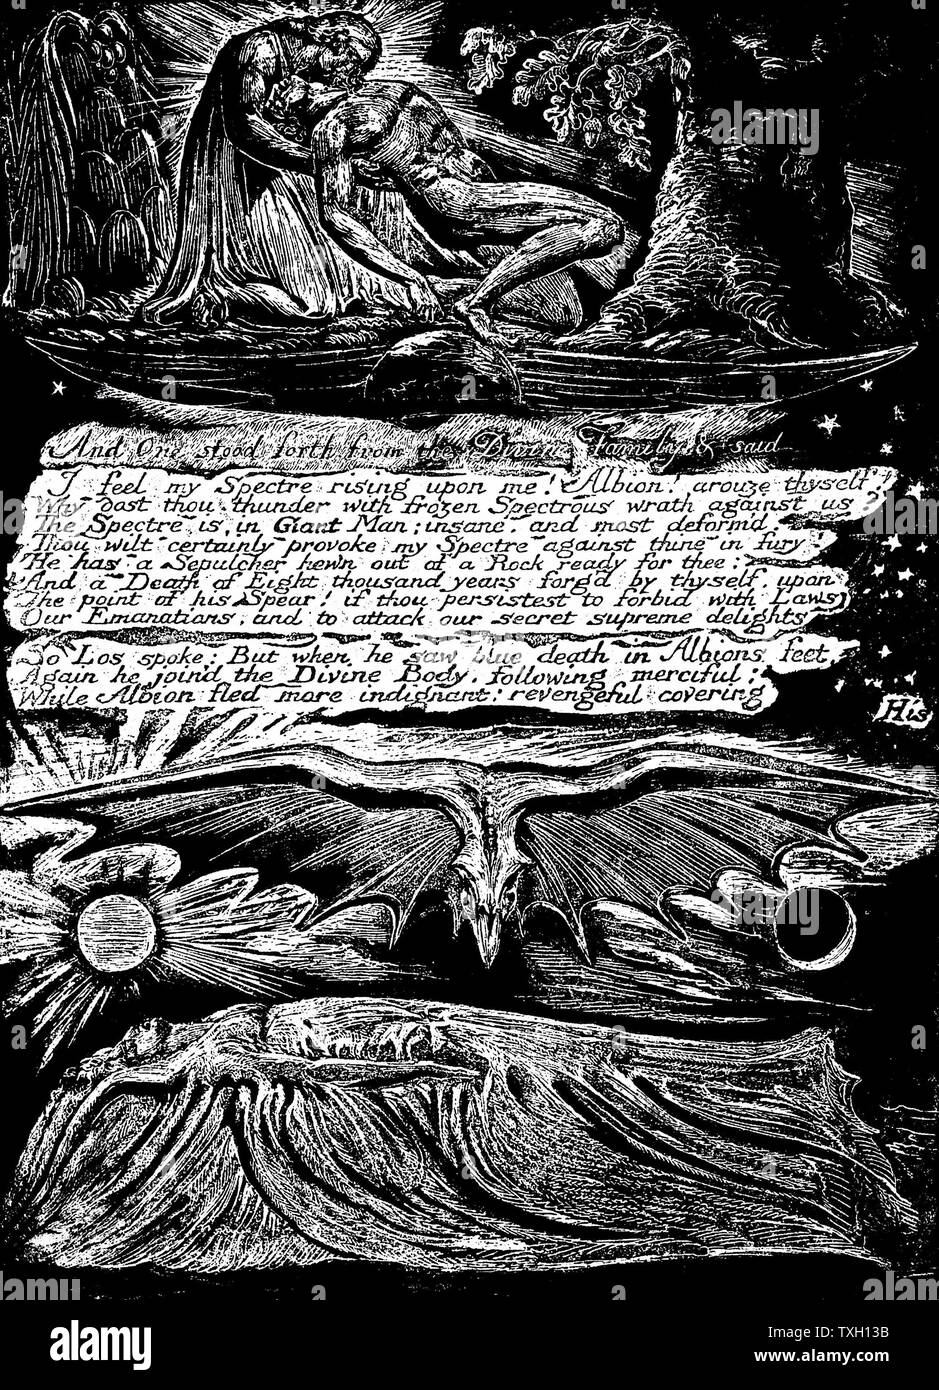 And One stood forth from the Divine Family & said
I feel my Spectre rising upon me! Albion! arouze thyself!
Why dost thou thunder with frozen Spectrous wrath against us?
The Spectre is, in Giant Man; insane, and most deform'd.
Thou wilt certainly provoke my Spectre against thine in fury!
He has a Sepulcher hewn out of a Rock ready for thee:
And a Death of Eight thousand years forg'd by thyself, upon
The point of his Spear! if thou persistest to forbid with Laws
Our Emanations, and to attack our secret supreme delights
So Los spoke: But when he saw blue death in Albions feet,
Again he join'd the Divine Body, following merciful;
While Albion fled more indignant! revengeful covering
His
a
alamy
a
alamy
Image ID: TXH13B
www.alamy.com